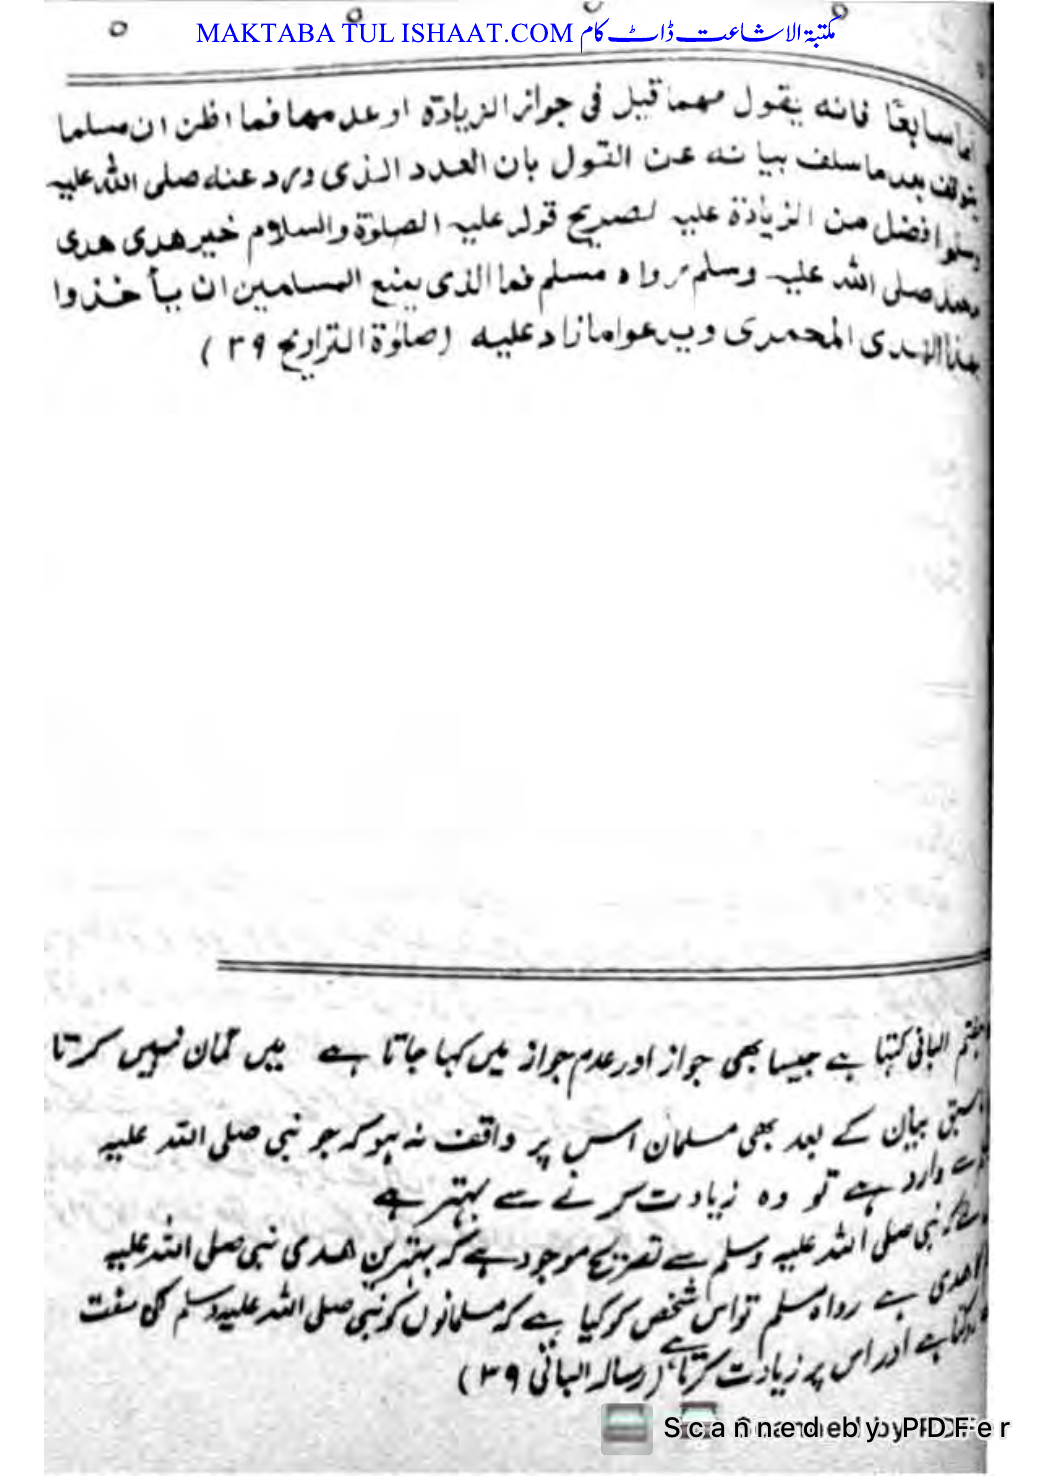 MAKTABA TUL ISHAAT.COM مکتبۃ الاشاعت ڈاٹ کام
اما سابعًا فانه يقول مهما قيل فى جواز الزيادة او عدمها فما اظن ان مسلما
يتوقف بعد ما سلف بيانه عن القول بان العدد الذى ورد عنه صلى الله عليه
وسلم افضل من الزيادة عليه لصريح قوله عليه الصلوة والسلام خير هدى هدى
محمد صلى الله عليه وسلم رواه مسلم فما الذى يمنع المسلمين ان يأخذوا
بهذا الهدى المحمدى ويدعوا ما زاد عليه (صلوة التراويح ٣٩)
ہفتم البانی کہتا ہے جیسا بھی جواز اور عدم جواز میں کہا جاتا ہے میں گمان نہیں کرتا
سبق بیان کے بعد بھی مسلمان اس پر واقف نہ ہو کہ جو نبی صلی اللہ علیہ
سے وارد ہے تو وہ زیادت کرنے سے بہتر ہے
نبی صلی اللہ علیہ وسلم سے تصریح موجود ہے کہ بہترین ھدی نبی صلی اللہ علیہ
ھدی ہے رواہ مسلم تو اس شخص کو کیا ہے کہ مسلمانوں کو نبی صلی اللہ علیہ وسلم کی سنت
روکتا ہے اور اس پر زیادت کرتا ہے (رسالہ البانی ۳۹)